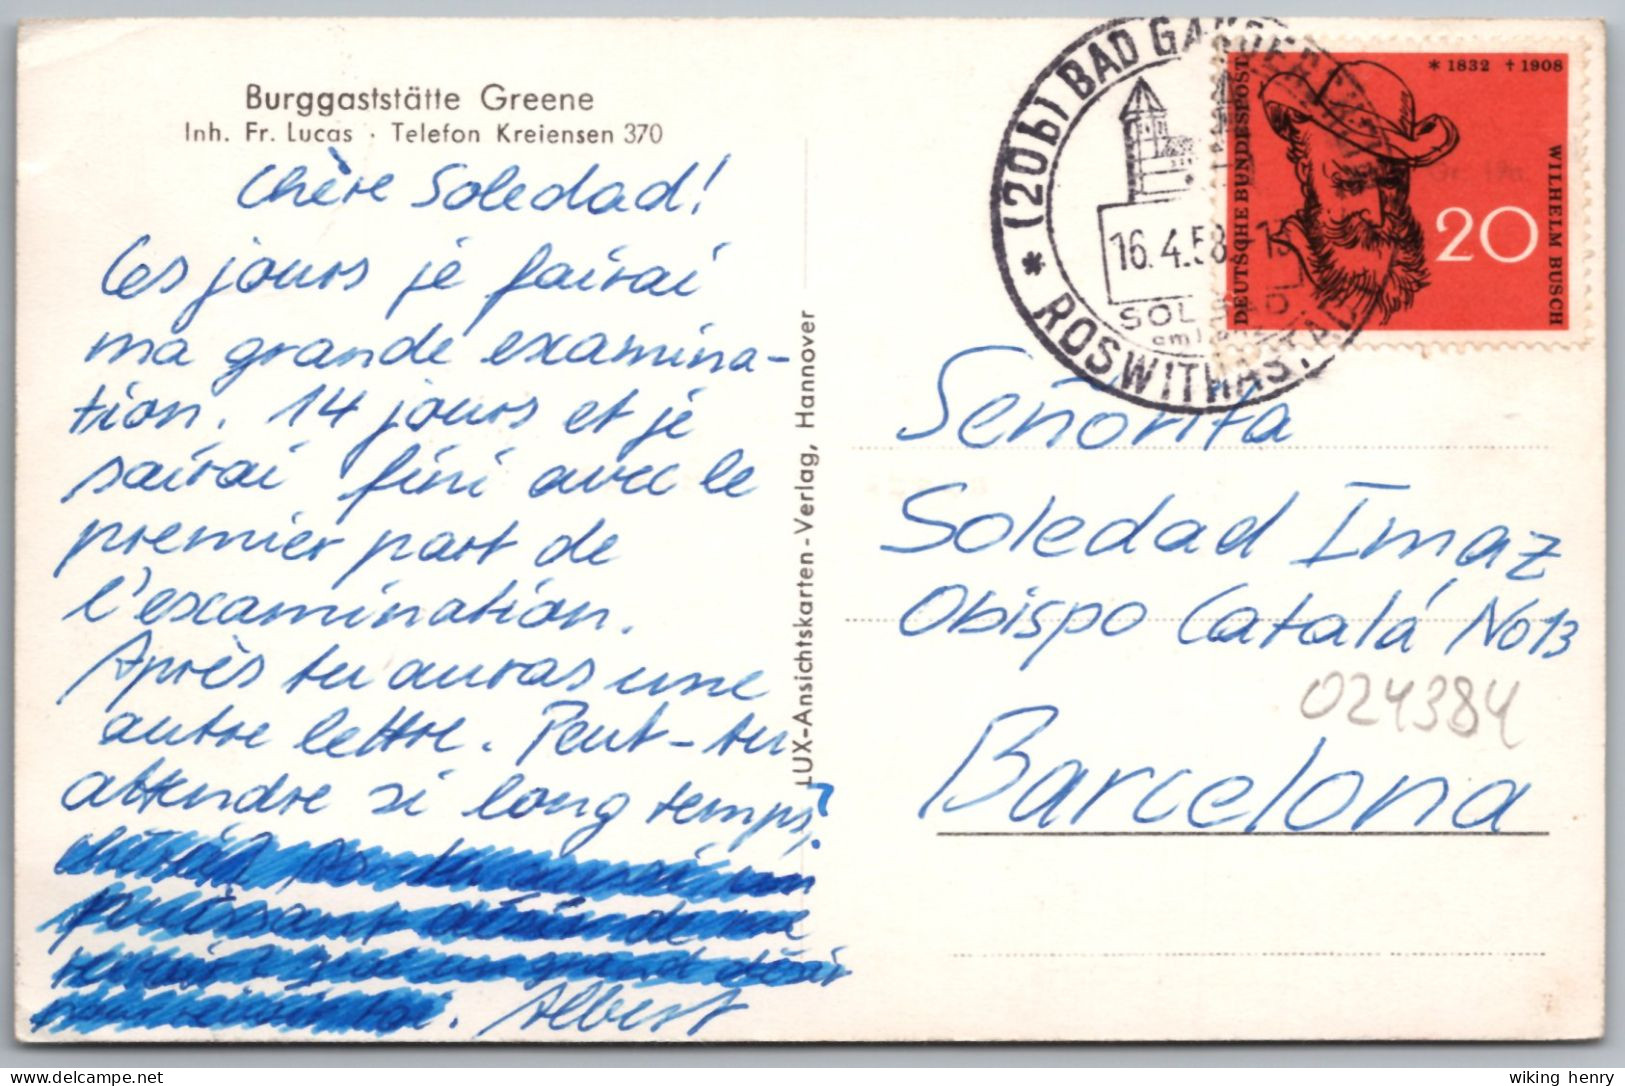 Burggaststätte Greene
Inh. Fr. Lucas · Telefon Kreiensen 370
Chère Soledad!
Ces jours je fairai
ma grande examina-
tion. 14 jours et je
sairai fini avec le
premier part de
l'examination.
Après tu auras une
autre lettre. Peut-tu
attendre si long temps?
Albert
LUX-Ansichtskarten-Verlag, Hannover
* (20b) BAD
16.4.58
SOL
ROSWITHAST
DEUTSCHE BUNDESPOST
* 1832 † 1908
WILHELM BUSCH
20
Señorita
Soledad Imaz
Obispo Catalá No 13
024384
Barcelona
wiking henry